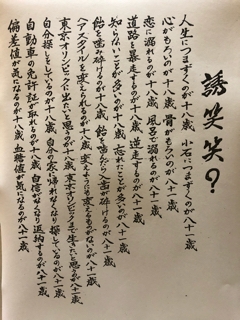 誘笑笑?
人生につまずくのが十八歳 小石につまずくのが八十一歳
心がもろいのが十八歳 骨がもろいのが八十一歳
恋に溺れるのが十八歳 風呂で溺れるのが八十一歳
道路を暴走するのが十八歳 逆走するのが八十一歳
知らないことが多いのが十八歳 忘れたことが多いのが八十一歳
飴を噛み砕けるのが十八歳 飴を噛んだら歯が砕けるのが八十一歳
ヘアスタイルを変えられるのが十八歳 変えようにも変えるものがないのが八十一歳
東京オリンピックに出たいと思うのが十八歳 東京オリンピックまで生きたいと思うのが八十一歳
自分探しをしているのが十八歳 自分の家に帰れなくなり探しているのが八十一歳
自動車の免許証が取れるのが十八歳 自信がなくなり返納するのが八十一歳
偏差値が気になるのが十八歳 血糖値が気になるのが八十一歳